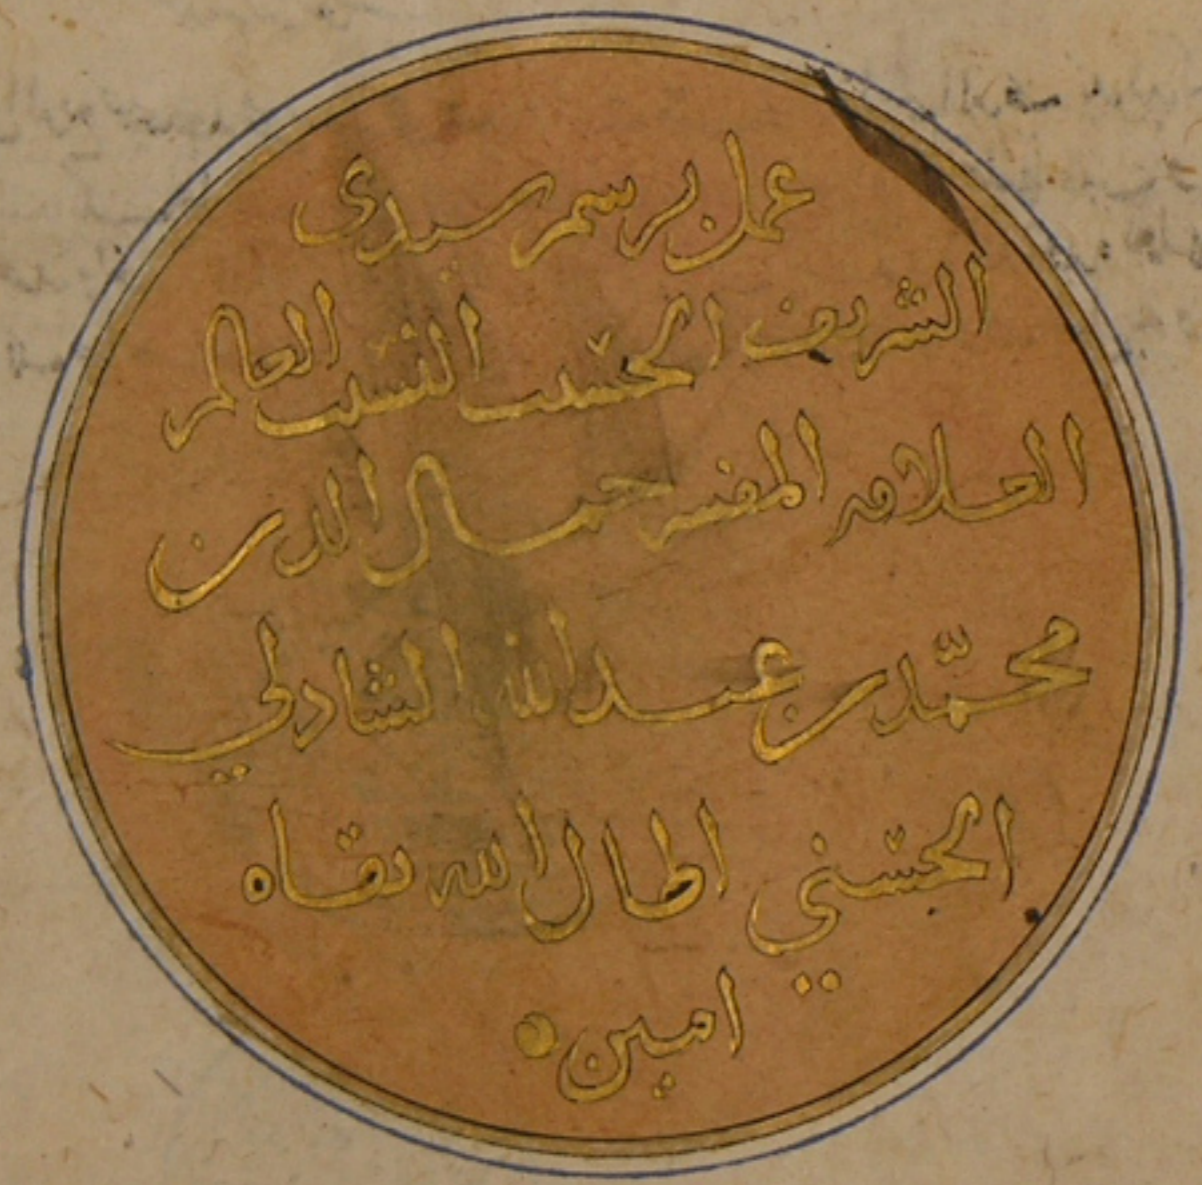 عمل برسم سيدي
الشريف الحسيب النسيب العالم
العلامه المفسر جمال الدين
محمّد بن عبد الله الشادلي
الحسني اطال الله بقاه
امين